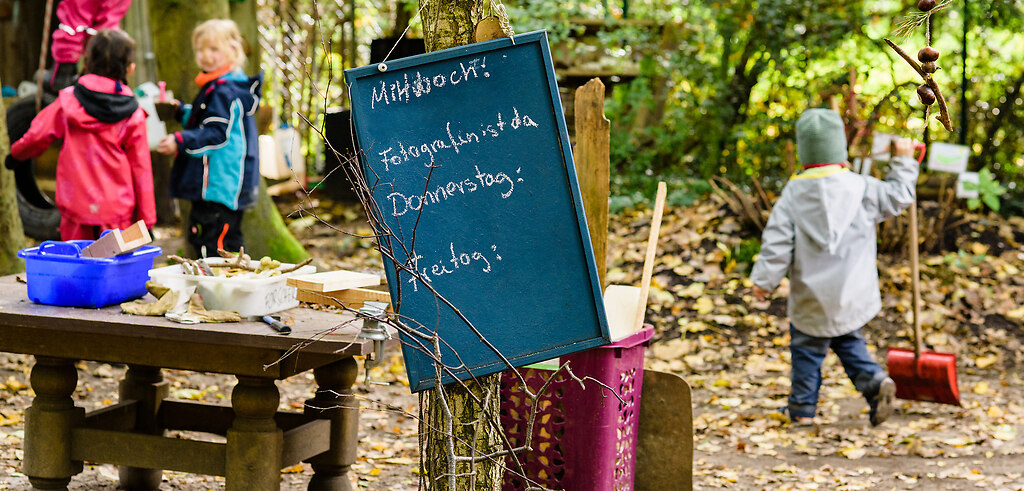 Mittwoch:
Fotografin ist da
Donnerstag:
Freitag: